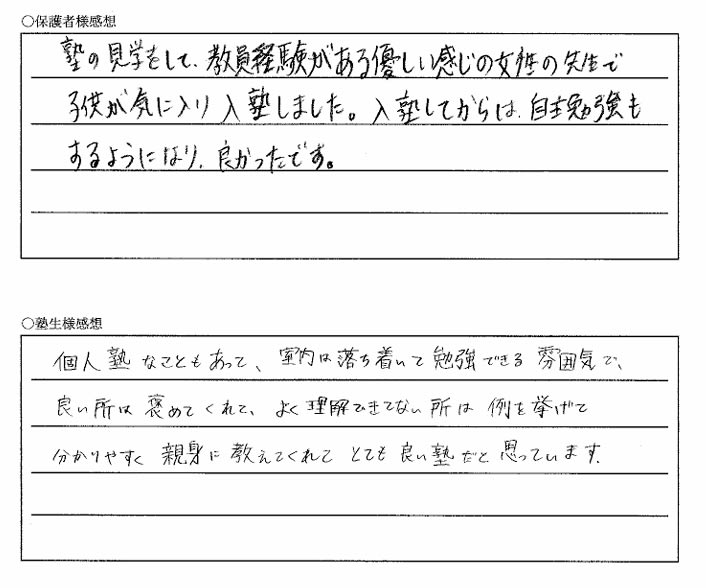 ○保護者様感想
塾の見学をして、教員経験がある優しい感じの女性の先生で
子供が気に入り入塾しました。入塾してからは、自主勉強も
するようになり、良かったです。
○塾生様感想
個人塾なこともあって、室内は落ち着いて勉強できる雰囲気で、
良い所は褒めてくれて、よく理解できてない所は例を挙げて
分かりやすく親身に教えてくれてとても良い塾だと思っています。